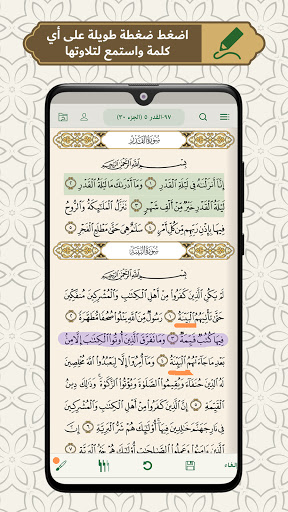 اضغط ضغطة طويلة على أي
كلمة واستمع لتلاوتها
٩٧-القدر ٥ (الجزء ٣٠)
سُورَةُ القَدْرِ
بِسْمِ ٱللَّهِ ٱلرَّحْمَٰنِ ٱلرَّحِيمِ
إِنَّآ أَنزَلْنَٰهُ فِى لَيْلَةِ ٱلْقَدْرِ ١ وَمَآ أَدْرَىٰكَ مَا لَيْلَةُ ٱلْقَدْرِ
٢ لَيْلَةُ ٱلْقَدْرِ خَيْرٌ مِّنْ أَلْفِ شَهْرٍ ٣ تَنَزَّلُ ٱلْمَلَٰٓئِكَةُ وَٱلرُّوحُ
فِيهَا بِإِذْنِ رَبِّهِم مِّن كُلِّ أَمْرٍ ٤ سَلَٰمٌ هِىَ حَتَّىٰ مَطْلَعِ ٱلْفَجْرِ ٥
سُورَةُ البَيِّنَةِ
بِسْمِ ٱللَّهِ ٱلرَّحْمَٰنِ ٱلرَّحِيمِ
لَمْ يَكُنِ ٱلَّذِينَ كَفَرُوا۟ مِنْ أَهْلِ ٱلْكِتَٰبِ وَٱلْمُشْرِكِينَ مُنفَكِّينَ
حَتَّىٰ تَأْتِيَهُمُ ٱلْبَيِّنَةُ ١ رَسُولٌ مِّنَ ٱللَّهِ يَتْلُوا۟ صُحُفًا مُّطَهَّرَةً
٢ فِيهَا كُتُبٌ قَيِّمَةٌ ٣ وَمَا تَفَرَّقَ ٱلَّذِينَ أُوتُوا۟ ٱلْكِتَٰبَ إِلَّا مِنۢ
بَعْدِ مَا جَآءَتْهُمُ ٱلْبَيِّنَةُ ٤ وَمَآ أُمِرُوٓا۟ إِلَّا لِيَعْبُدُوا۟ ٱللَّهَ مُخْلِصِينَ
لَهُ ٱلدِّينَ حُنَفَآءَ وَيُقِيمُوا۟ ٱلصَّلَوٰةَ وَيُؤْتُوا۟ ٱلزَّكَوٰةَ وَذَٰلِكَ دِينُ
ٱلْقَيِّمَةِ ٥ إِنَّ ٱلَّذِينَ كَفَرُوا۟ مِنْ أَهْلِ ٱلْكِتَٰبِ وَٱلْمُشْرِكِينَ
فِى نَارِ جَهَنَّمَ خَٰلِدِينَ فِيهَآ أُو۟لَٰٓئِكَ هُمْ شَرُّ ٱلْبَرِيَّةِ ٦ إِنَّ